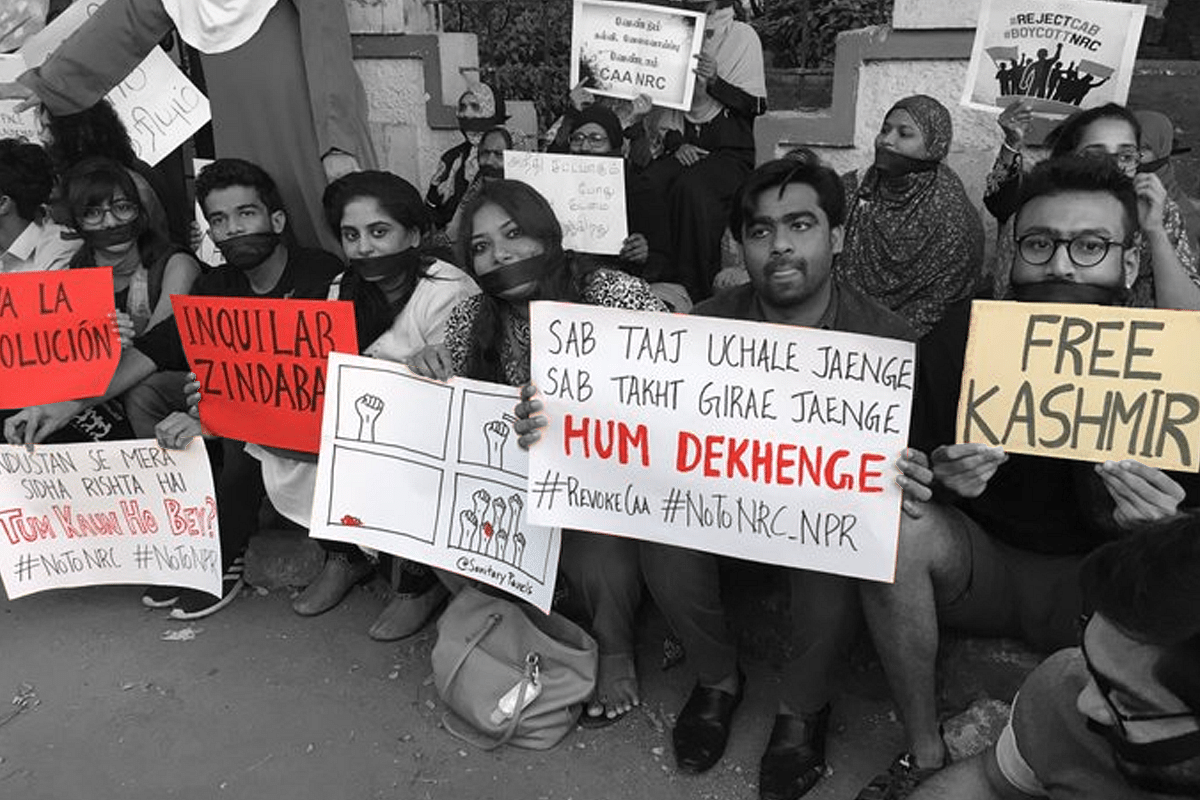 வேண்டும்
கல்வி, வேலைவாய்ப்பு
வேண்டாம்
CAA NRC
#REJECTCAB
#BOYCOTTNRC
போது
VA LA
OLUCIÓN
INQUILAB
ZINDABA
NDUSTAN SE MERA
SIDHA RISHTA HAI
TUM KAUN HO BEY?
#NOTONRC #NOTONPR
@SanitaryPanels
SAB TAAJ UCHALE JAENGE
SAB TAKHT GIRAE JAENGE
HUM DEKHENGE
#REVOKECAA #NOTONRC_NPR
FREE
KASHMIR